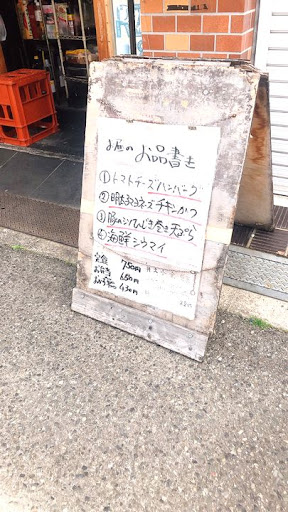 お昼のお品書き
①トマトチーズハンバーグ
②明太マヨネーズチキンかつ
③豚のシソひじき巻き天ぷら
④海鮮シウマイ
定食 750円
お弁当 650円
430円